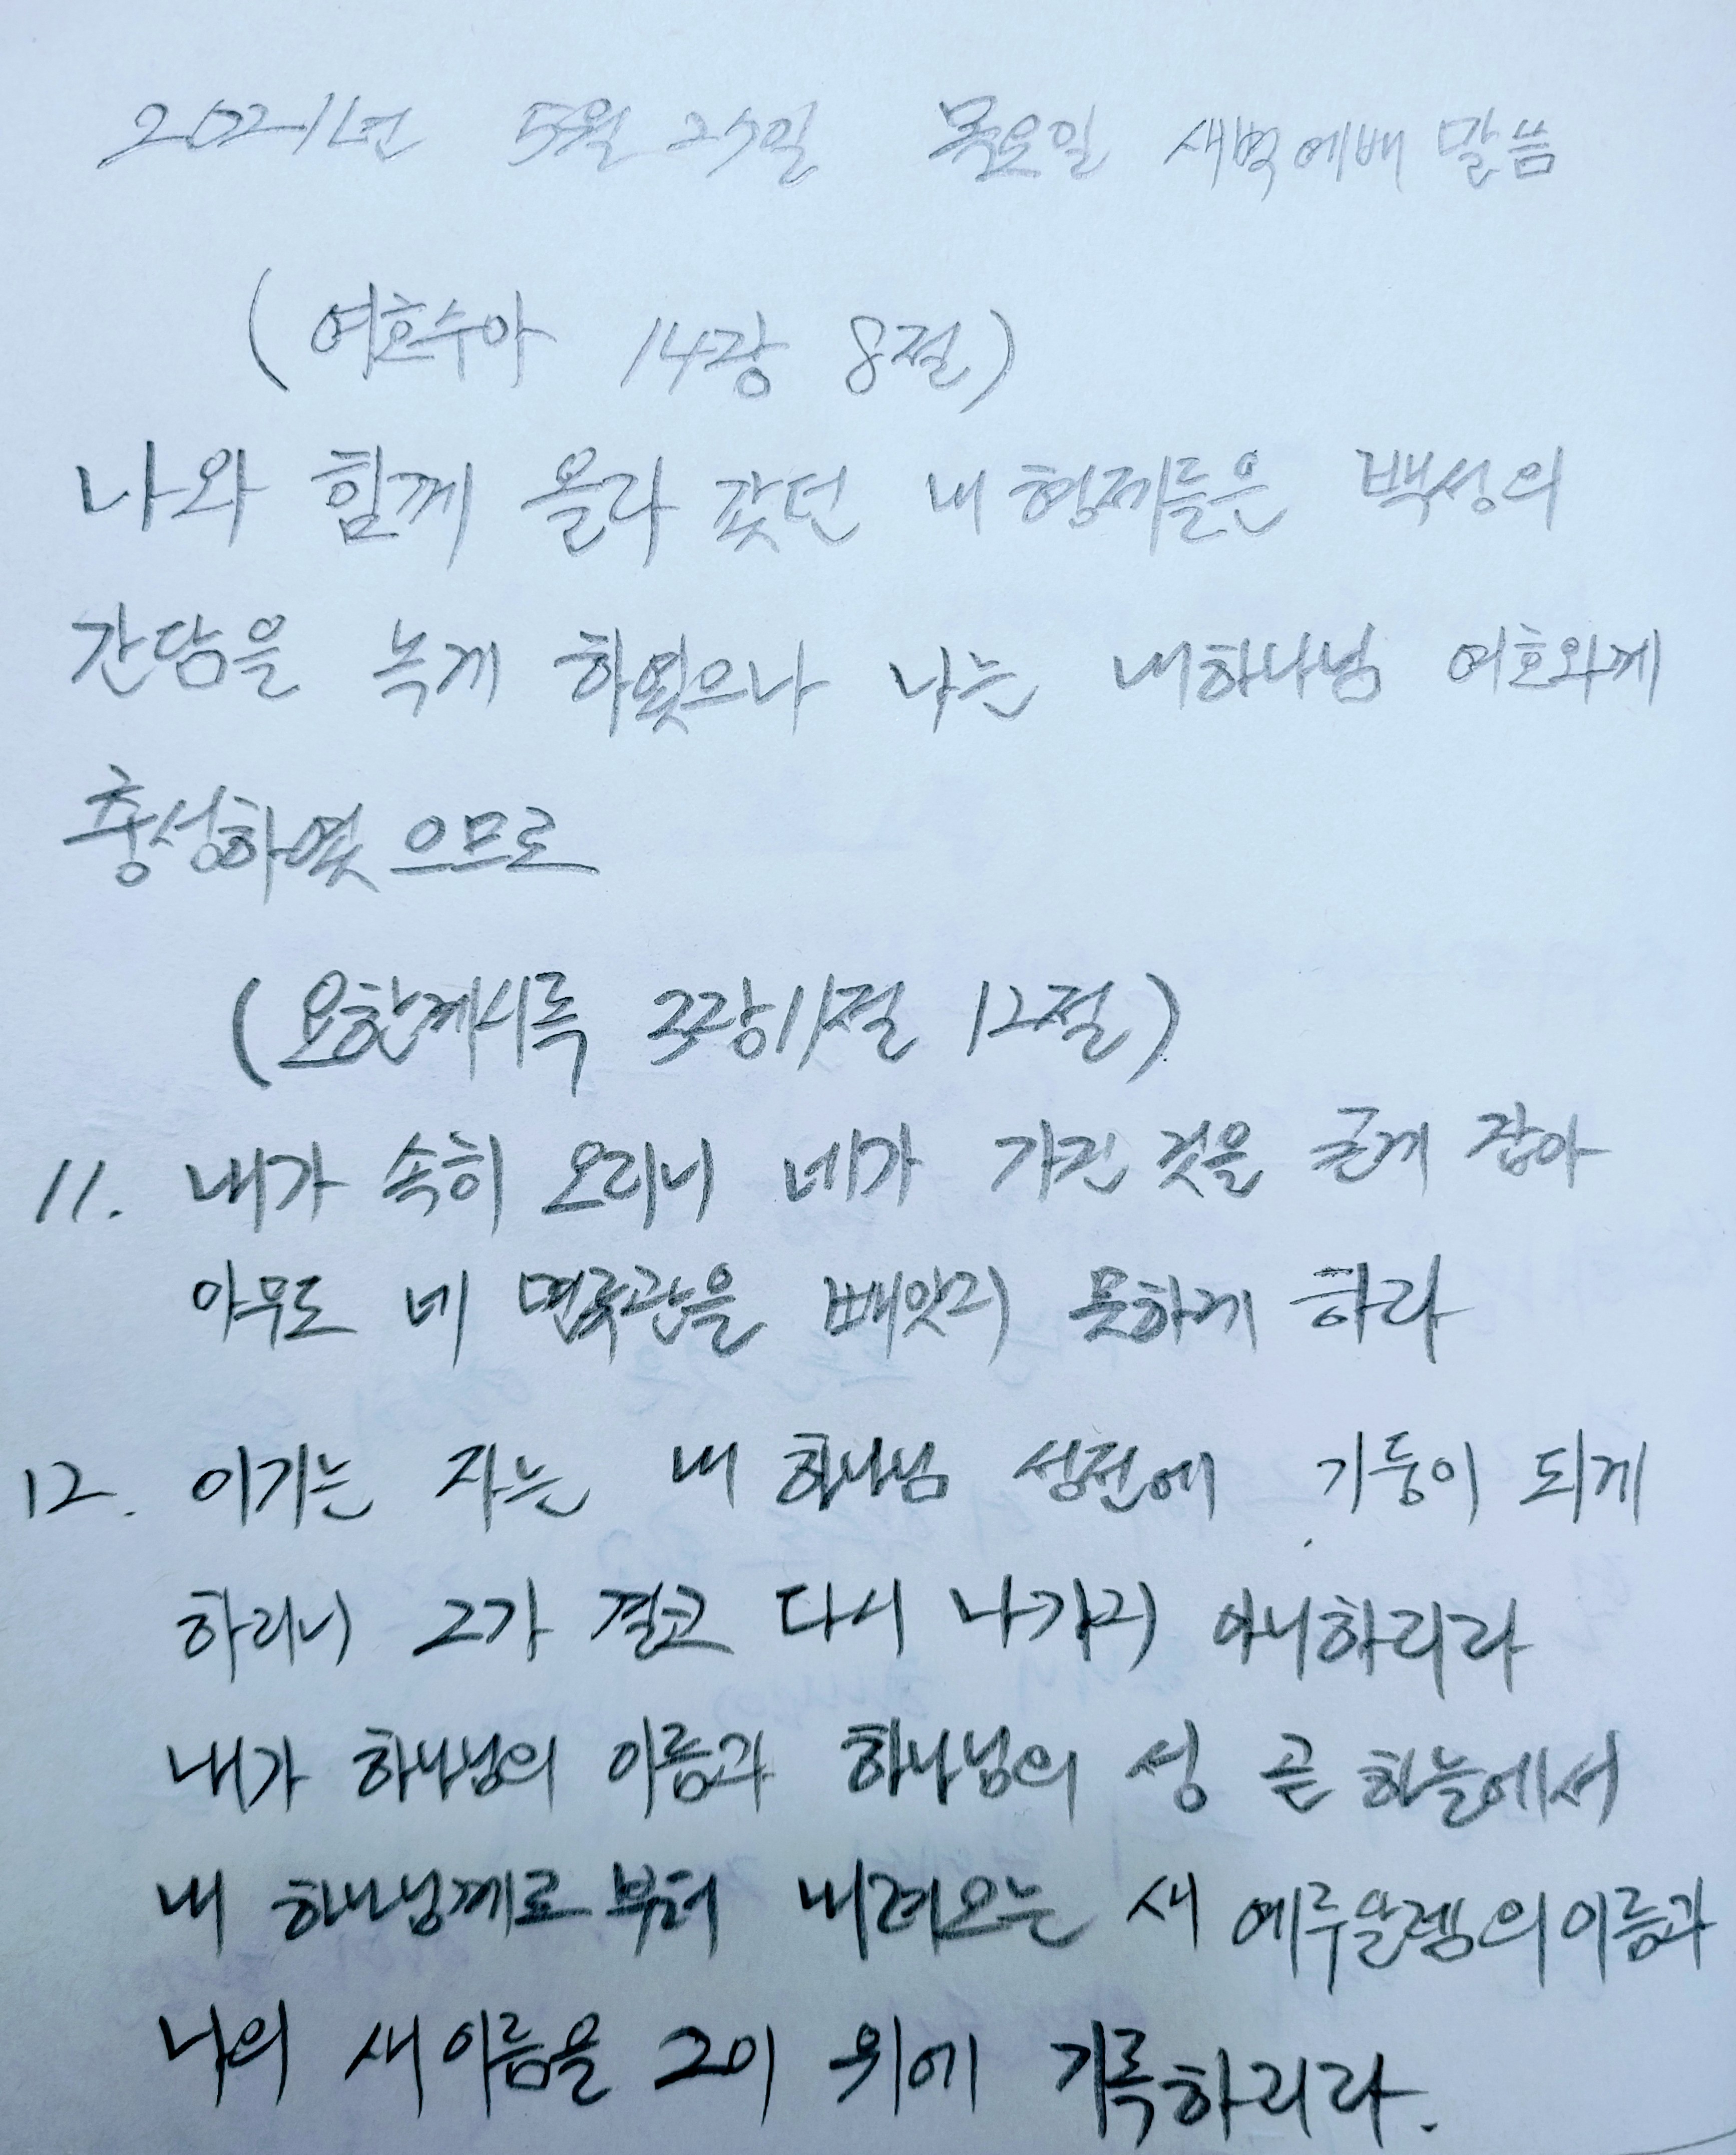 2021년 5월 27일 목요일 새벽예배 말씀
(여호수아 14장 8절)
나와 함께 올라 갔던 내 형제들은 백성의
간담을 녹게 하였으나 나는 내하나님 여호와께
충성하였으므로
(요한계시록 3장11절 12절)
11. 내가 속히 오리니 네가 가진 것을 굳게 잡아
아무도 네 면류관을 빼앗지 못하게 하라
12. 이기는 자는 내 하나님 성전에 기둥이 되게
하리니 그가 결코 다시 나가지 아니하리라
내가 하나님의 이름과 하나님의 성 곧 하늘에서
내 하나님께로 부터 내려오는 새 예루살렘의 이름과
나의 새 이름을 그이 위에 기록하리라.